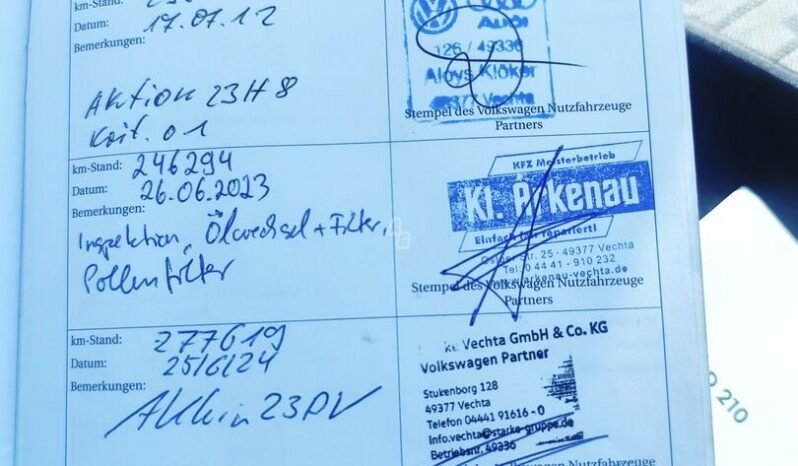 km-Stand:
Datum: 17.07.12
Bemerkungen:
Aktion 23H8
Krit. 01
126 / 49336
AUDI
Aloys Klöker
49377 Vechta
Stempel des Volkswagen Nutzfahrzeuge
Partners
km-Stand: 246294
Datum: 26.06.2023
Bemerkungen:
Inspektion, Ölwechsel + Filter,
Pollenfilter
KFZ Meisterbetrieb
Kl. Arkenau
Einfach fair repariert!
Str. 25 - 49377 Vechta
Tel: 0 44 41 - 910 232
arkenau-vechta.de
Stempel des Volkswagen Nutzfahrzeuge
Partners
km-Stand: 277619
Datum: 25/6/24
Bemerkungen:
Aktion 23DV
Vechta GmbH & Co. KG
Volkswagen Partner
Stukenborg 128
49377 Vechta
Telefon 04441 91616 - 0
Info.vechta@starke-gruppe.de
Betriebsnr. 49336
Volkswagen Nutzfahrzeuge
210